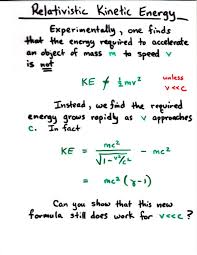 Relativistic Kinetic Energy
Experimentally, one finds
that the energy required to accelerate
an object of mass m to speed v
is not
KE ≠ ½mv² unless
v<<c
Instead, we find the required
energy grows rapidly as v approaches
c. In fact
KE = mc²/√(1-v²/c²) - mc²
= mc² (γ-1)
Can you show that this new
formula still does work for v<<c?